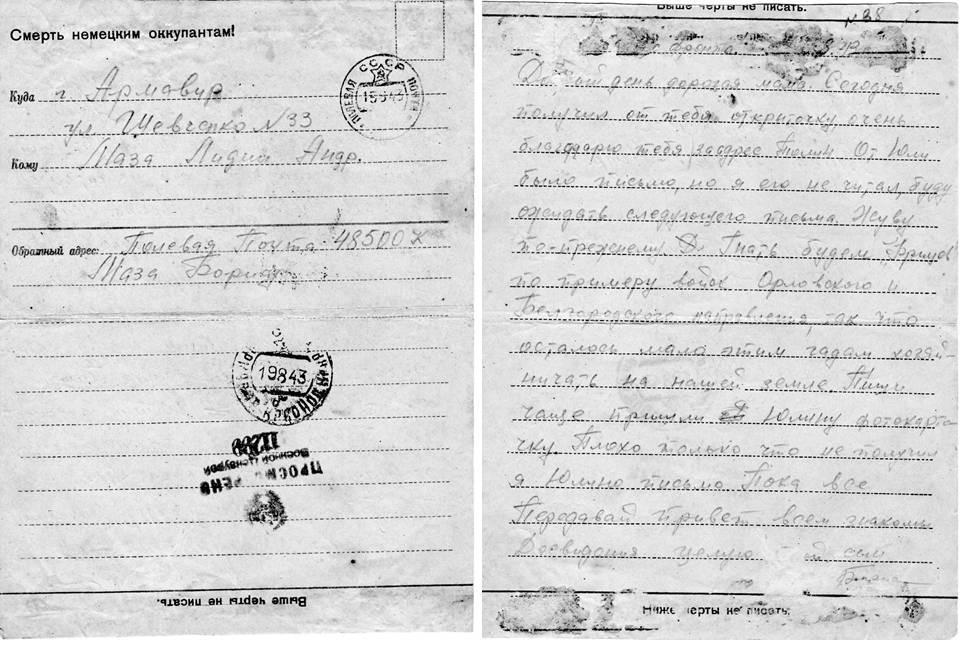 Смерть немецким оккупантам!
Куда г. Армавир
ул. Шевченко N 33
Кому Маза Лидии Андр.
Обратный адрес: Полевая Почта 48500
Маза Борис
СССР
ПОЛЕВАЯ ПОЧТА
15 8 43
19 8 43
ПРОСМОТРЕНО
Военной Цензурой
Выше черты не писать.
Выше черты не писать.
N 38
Добрый день дорогая мама. Сегодня
получил от тебя открыточку, очень
благодарю тебя за адрес От Юли
было письмо, но я его не читал, буду
ожидать следующего письма. Живу
по-прежнему. Гнать будем Фрицов
по примеру войск Орловского и
Белгородского направления, так что
осталось мало этим гадам хозяй-
ничать на нашей земле. Пиши
чаще пришли Юлину фотокарто
чку. Плохо только что не получил
я Юлино письмо. Пока все
Передавай привет всем знакомы
Досвидания целую
Ниже черты не писать.